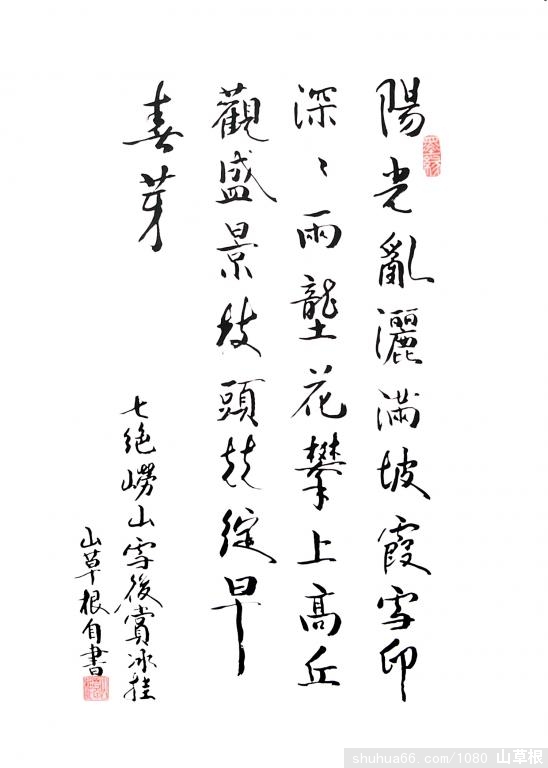 陽光亂灑滿坡霞雪印
深〻兩壟花攀上高丘
觀盛景枝頭綻早
春芽
七絕嶗山雪後賞冰挂
山草根自書
shuhua66.com/1080 山草根